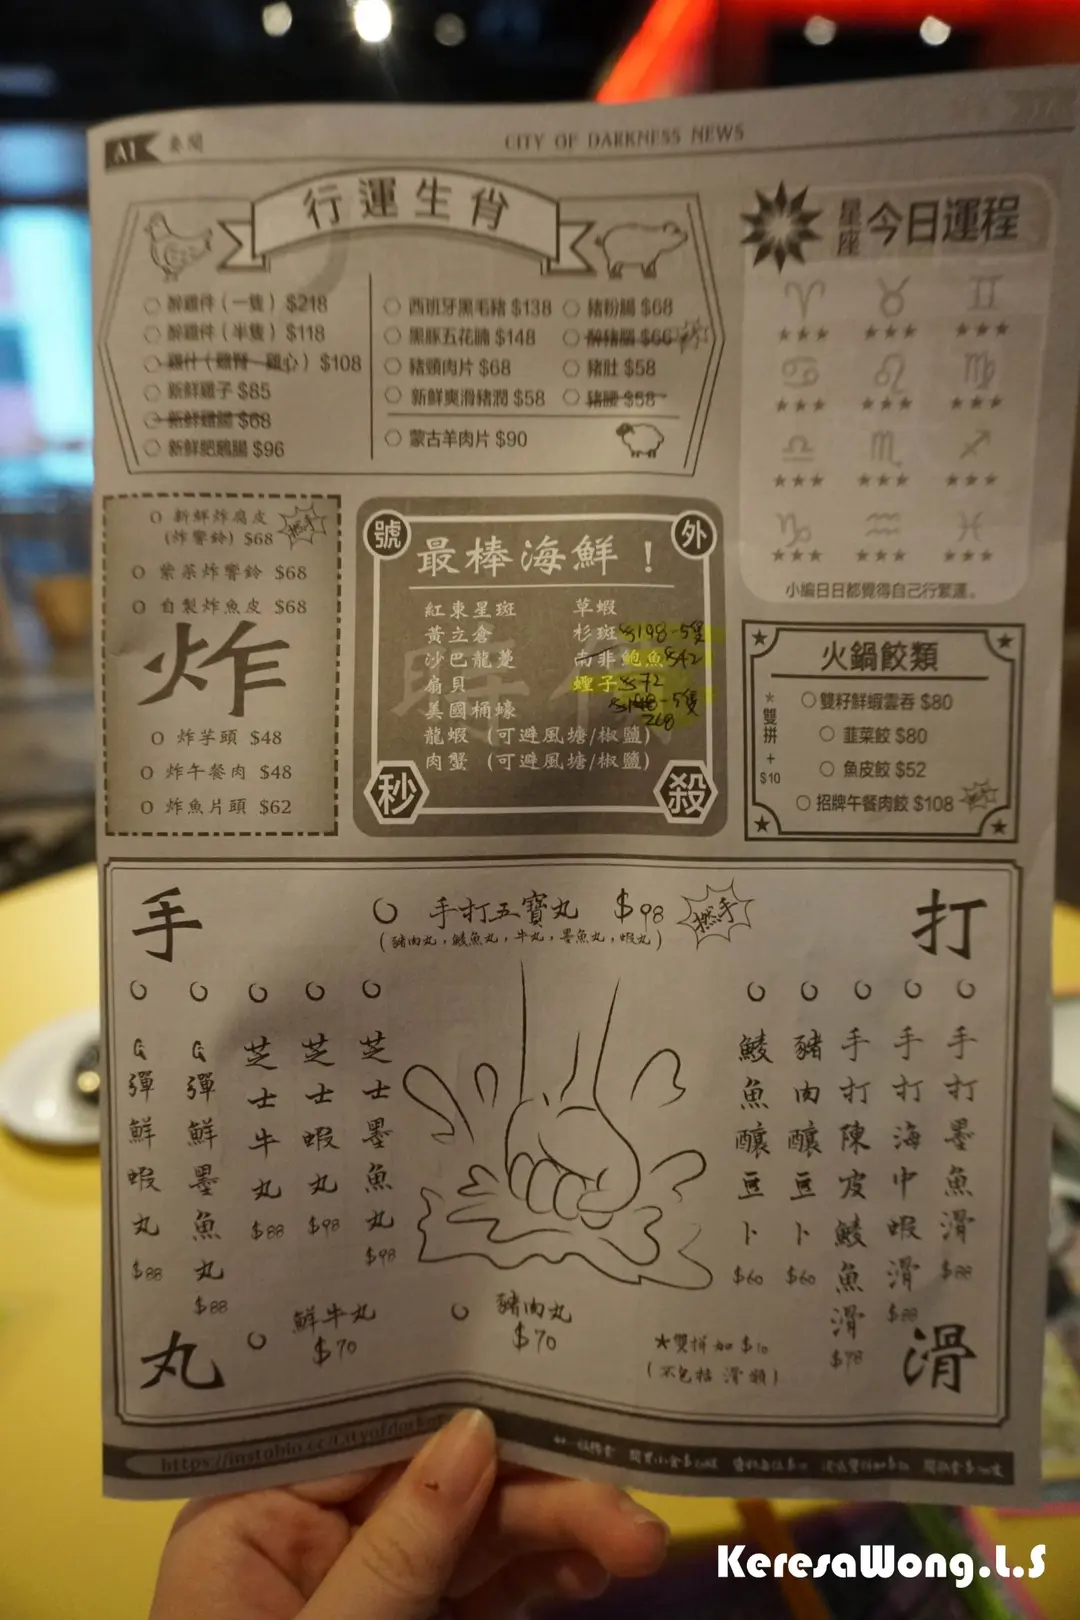 A1 要聞
CITY OF DARKNESS NEWS
行運生肖
醉雞件（一隻）$218
醉雞件（半隻）$118
雞什（雞腎 雞心）$108
新鮮雞子 $85
新鮮雞腸 $68
新鮮肥鵝腸 $96
西班牙黑毛豬 $138
黑豚五花腩 $148
豬頸肉片 $68
新鮮爽滑豬潤 $58
蒙古羊肉片 $90
豬粉腸 $68
醉豬腸 $66
豬肚 $58
豬腰 $58
星座 今日運程
★★★ ★★★ ★★★
★★★ ★★★ ★★★
★★★ ★★★ ★★★
★★★ ★★★ ★★★
小編日日都覺得自己行緊運。
新鮮炸腐皮
(炸響鈴) $68
撚手
紫菜炸響鈴 $68
自製炸魚皮 $68
炸
炸芋頭 $48
炸午餐肉 $48
炸魚片頭 $62
號外
最棒海鮮！
紅東星斑
黃立倉
沙巴龍躉
扇貝
美國桶蠔
龍蝦（可避風塘/椒鹽）
肉蟹（可避風塘/椒鹽）
草蝦
杉斑 $198-5隻
南非鮑魚 $42
蟶子 $72
$198-5隻
268
時價
秒殺
火鍋餃類
雙籽鮮蝦雲吞 $80
韮菜餃 $80
魚皮餃 $52
招牌午餐肉餃 $108
★雙拼+$10
手打丸滑
手打五寶丸 $98
撚手
(豬肉丸，鯪魚丸，牛丸，墨魚丸，蝦丸)
Q彈鮮蝦丸 $88
Q彈鮮墨魚丸 $88
芝士牛丸 $88
芝士蝦丸 $98
芝士墨魚丸 $98
鯪魚釀豆卜 $60
豬肉釀豆卜 $60
手打陳皮鯪魚滑 $78
手打海中蝦滑 $88
手打墨魚滑 $88
鮮牛丸
$70
豬肉丸
$70
★雙拼加$10
(不包括滑類)
https://instabio.cc/Cityofdarkn
KeresaWong.L.S